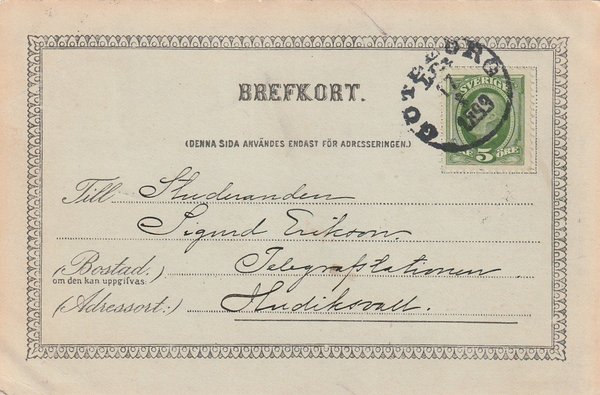 BREFKORT.
GÖTEBORG
LBR
17
1899
SVERIGE
5 ÖRE
(DENNA SIDA ANVÄNDES ENDAST FÖR ADRESSERINGEN.)
Till Studeranden
Sigurd Erikson.
(Bostad.) Telegrafstationen
om den kan uppgifvas:
(Adressort:) Hudiksvall.